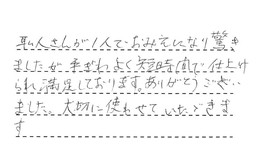 職人さんが1人でおみえになり驚き
ましたが手ぎわよく短時間で仕上げ
られ満足しております。ありがとうござい
ました。大切に使わせていただきま
す